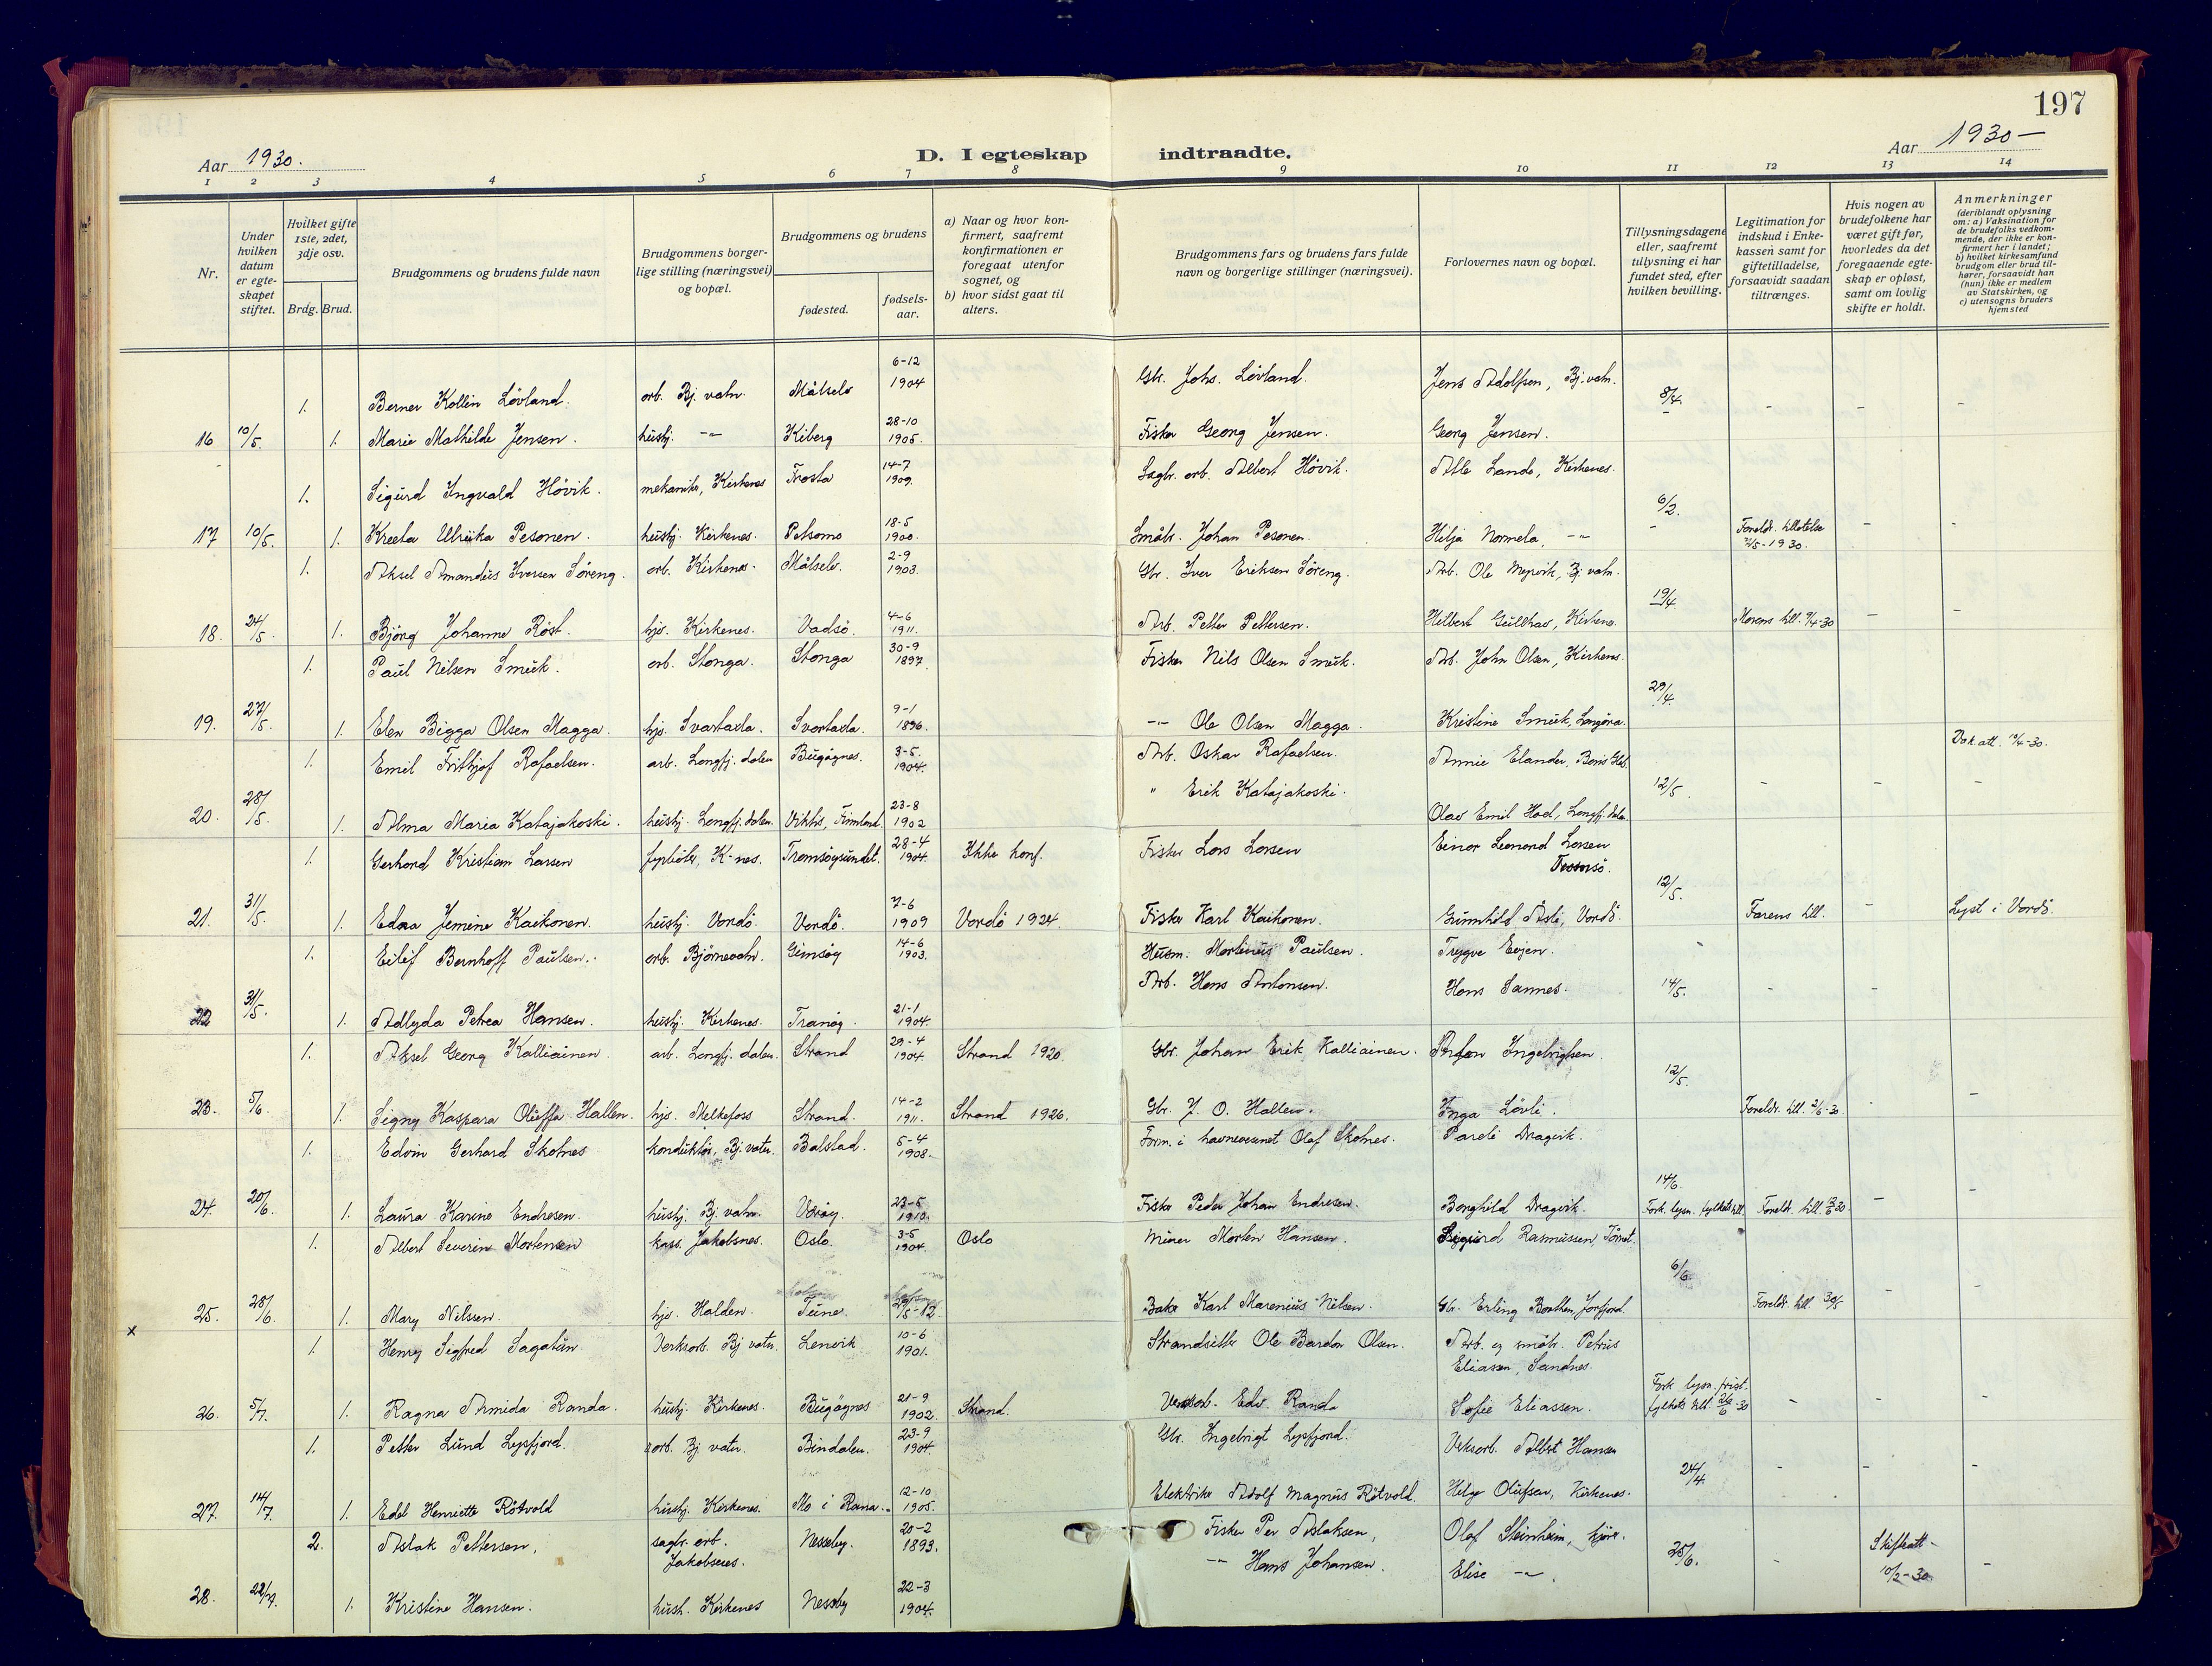 197
Aar 1930.
D. I egteskap indtraadte.
Aar 1930-
1 2 3 4 5 6 7 8 9 10 11 12 13 14
Nr.
Under hvilken datum er egteskapet stiftet.
Hvilket gifte 1ste, 2det, 3dje osv.
Brdg. Brud.
Brudgommens og brudens fulde navn
Brudgommens borgerlige stilling (næringsvei) og bopæl.
Brudgommens og brudens
fødested.
fødselsaar.
a) Naar og hvor konfirmert, saafremt konfirmationen er foregaat utenfor sognet, og
b) hvor sidst gaat til alters.
Brudgommens fars og brudens fars fulde navn og borgerlige stillinger (næringsvei).
Forlovernes navn og bopæl.
Tillysningsdagene eller, saafremt tillysning ei har fundet sted, efter hvilken bevilling.
Legitimation for indskud i Enkekassen samt for giftetilladelse, forsaavidt saadan tiltrænges.
Hvis nogen av brudefolkene har været gift før, hvorledes da det foregaaende egteskap er opløst, samt om lovlig skifte er holdt.
Anmerkninger
(deriblandt oplysning om: a) Vaksination for de brudefolks vedkommende, der ikke er konfirmert her i landet; b) hvilket kirkesamfund brudgom eller brud tilhører, forsaavidt han (hun) ikke er medlem av Statskirken, og c) utensogns bruders hjemsted
1. Berner Kollin Lövland. arb. Bj. vatn. Målselv 6-12 1904 Gbr. Johs. Lövland. Jens Adolfsen, Bj. vatn. 8/4. - - -
16 10/5. 1. Marie Mathilde Jensen. hustj. -"- Kiberg 28-10 1905. Fisker Georg Jensen. Georg Jensen.
1. Sigurd Ingvald Hövik. mekaniker, Kirkenes Frosta 14-7 1909. Sagbr. arb. Albert Hövik. Atle Lande, Kirkenes. 6/2.
17 10/5. 1. Kreeta Ulriika Pesonen. hustj. Kirkenes. Petsamo 18-5 1900. Småbr. Johan Pesonen. Hilja Normela, -"- Foreldr. tillatelse -1930. - -
1. Aksel Amandus Iversen Söreng. arb. Kirkenes. Målselv. 2-9 1903. Gbr. Iver Eriksen Söreng. Arb. Ole Myrvik, Bj. vatn. 19/4.
18. 24/5. 1. Björg Johanne Röst. hjv. Kirkenes. Vadsö. 4-6 1911. Arb. Petter Pettersen. Hilbert Gullhav, Kirkenes. Morens till. 9/4-30 - -
1. Paul Nilsen Smuk. arb. Stonga. Stonga 30-9 1897. Fisker Nils Olsen Smuk. Arb. John Olsen, Kirkenes. 29/4.
19. 27/5. 1. Elen Bigga Olsen Magga. hjv. Svartaxla. Svartaxla. 9-1 1896. -"- Ole Olsen Magga. Kristine Smuk,
1. Emil Fritjof Rafaelsen. arb. Langfj. dalen Bugöynes. 3-5. 1904. Arb. Oskar Rafaelsen. Annie Elander, Boris Gleb. 12/5. - - - Vak. att. -30.
20. 28/5. 1. Alma Maria Katajakoski. hustj. Langfj. dalen. Viktis, Finnland. 23-8 1902 " Erik Katajakoski. Olav Emil Hod, Langfj. dalen
1. Gerhard Kristian Larsen fyrböter, K-nes. Tromsöysundet. 28-4 1904. Ikke konf. Fisker Lars Larsen Einar Leonard Larsen Tromsö. 12/5.
21. 31/5. 1. Edna Jemine Kaikonen. hustj. Vardö. Vardö. 7-6 1909 Vardö 1924. Fisker Karl Kaikonen. Gunnhild Asli, Vardö. Farens till. - Lyst i Vardö.
1. Eilif Bernhoff Paulsen. arb. Björnevatn. Gimsöy 14-6 1903. Husm. Mortinus Paulsen. Trygve Evjen.
22 31/5. 1. Adlyda Petrea Hansen. hustj. Kirkenes. Tranöy. 21-1 1904. Arb. Hans Antonsen. Hans Sannes. 14/5. - - -
1. Aksel Georg Kalliainen. arb. Langfj. dalen. Strand 29-4 1904. Strand 1920. Gbr. Johan Erik Kalliainen. Ingebrigtsen. 12/5.
23. 5/6. 1. Signy Kaspara Oluffa Hallen. hjv. Melkefoss Strand. 14-2 1911. Strand 1926. Gbr. J. O. Hallen. Inga Lövli. Foreldr. till. 2/6-30. - -
1. Edvin Gerhard Skotnes konduktör, Bj. vatn. Balstad. 5-4 1908. Form. i havnevesenet Olaf Skotnes. Pareli Dragvik.
24. 20/6. 1. Laura Karine Endresen. hustj. Bj. vatn. Væröy. 23-5 1910. Fisker Peder Johan Endresen. Borghild Dragvik. 14/6. Fork. lysn. fylkets till. Foreldr. till. -30 - -
1. Albert Severin Mortensen kass. Jakobsnes. Oslo. 3-5 1904. Oslo Murer Morten Hansen. Sigurd Rasmussen, 6/6.
25. 28/6. 1. Mary Nilssen. hjv. Halden. Tune. 29/5-12. Baker Karl Marenius Nilsen. Gbr. Erling Barthen, Jarfjord Foreldr. till. 30/5 - -
x 1. Henry Sigfred Sagatun Verksarb. Bj vatn. Lenvik 10-6 1901. Strandsitter Ole Bardon Olsen. Arb. og småbr. Petrus Eliassen, Sandnes.
26. 5/7. 1. Ragna Armida Randa. hustj. Kirkenes. Bugöynes 21-9 1902. Strand. Verksarb. Edv. Randa Sofie Eliassen. Fork. lysn. frist. fylkets till. 26/6-30 - - -
1. Petter Lund Lysfjord. arb. Bj vatn. Bindalen. 23-9 1904. Gbr. Ingebrigt Lysfjord. Verksarb. Albert Hansen 24/4 - - -
27. 14/7. 1. Edel Henriette Rötvold hustj. Kirkenes. Mo i Rana. 12-10. 1905. Elektriker Adolf Magnus Rötvold. Helge Olufsen, Kirkenes.
2. Aslak Pettersen, sagbr. arb. Jakobsnes. Nesseby. 20-2 1893. Fisker Per Aslaksen, Olaf Steinheim, 25/6. - Skifteatt- 10/2-30 -
28. 22/7. 1. Kristine Hansen. hush. Kirkenes Nesseby 22-3 1904. -"- Hans Johansen. Elise -"-.